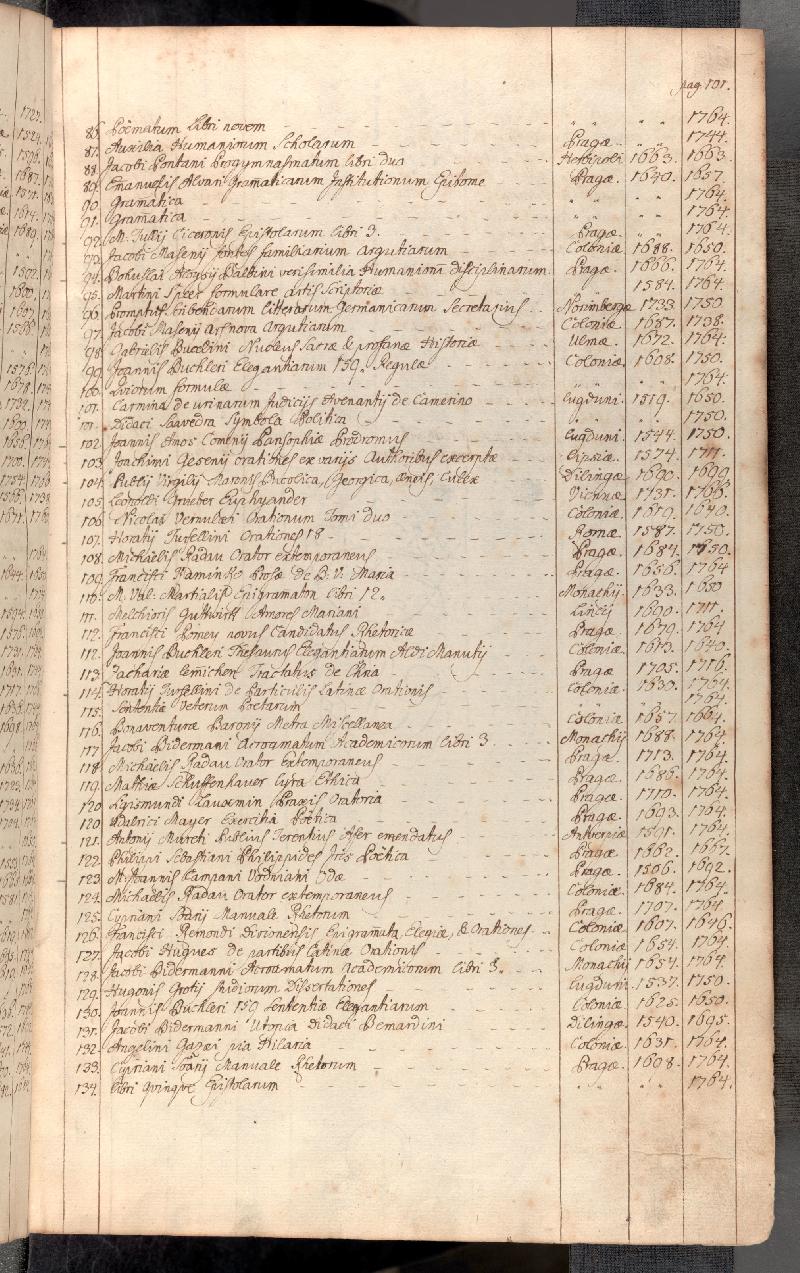 pag. 101.
86. Poëmatum Libri novem „ „ „ „ 1764.
87. Auxilia Humaniorum Scholarum Pragæ. „ „ 1744.
88. Jacobi Pontani Progymnasmatum libri duo Herbipoli 1663. 1663.
89. Emanuelis Alvari Gramaticarum Institutionum Epitome Pragæ. 1640. 1657.
90. Gramatica „ „ „ „ 1764.
91. Gramatica „ „ „ „ 1764.
92. M. Tullij Ciceronis Epistolarum libri 3. Pragæ „ „ 1764.
93. Jacobi Masenij fontes familiarium argutiarum Coloniæ 1688. 1650.
94. Bohuslai Aloysij Balbini verisimilia Humaniorũ disciplinarum Pragæ. 1666. 1764.
95. Martini Speer formulare artis Scriptoriæ „ 1584. 1764.
96. Promptus Germanicarum Secretarius Norimbergæ 1733. 1750
97. Jacobi Masenij Ars nova Argutiarum Coloniæ 1687. 1738.
98. Gabrielis Bucelini Nucleus Sacræ & profanæ Historiæ Ulmæ 1672. 1764.
99. Joannis Buchleri Elegantiarum 159. Regulæ Coloniæ 1608. 1750.
100. formulæ „ „ „ „ 1764.
101. Carmina de urinarum Judicijs de Camerino Lugduni 1519. 1650.
101. Didaci Saavedra Symbola Politica „ „ 1750.
102. Joannis Amos Comenij Pansophiæ Prodromus Lugduni 1544. 1750.
103. Joachimi Gesenij orationes ex varijs Authoribus excerptæ Lipsiæ 1574. 1711.
104. Publij Virgilij Maronis Bucolica, Georgica, Æneis, Culex Dilingæ 1690. 1699
105. Leopoldi Grueber Viennæ 1731. 1766.
106. Nicolai Vernulæi Orationum Tomi duo Coloniæ 1619. 1640.
107. Horatij Tursellini Orationes 18 Romæ 1587. 1750.
108. Michaëlis Radau Orator extemporaneus Pragæ 1684. 1750.
109. Francisci Kaminsko Prosæ de B. V. Maria Pragæ. 1656. 1764
110. M. Val. Martialis Epigramaton libri 12. Monachij 1633. 1650
111. Melchioris Guttwirth Amores Mariani Lincij 1690. 1711.
112. Francisci Pomey novus Candidatus Rhetoricæ Pragæ 1679. 1764
112. Joannis Buchleri Thesaurus Elegantiarum Aldi Manutij Coloniæ 1613. 1640.
113. Zachariæ Lemichen Tractatus de Chria Pragæ 1705. 1716.
114. Horatij Tursellini de Particulis Latinæ Orationis Coloniæ. 1630. 1764.
115. Sententiæ Veterum Poetarum „ „ 1764.
116. Bonaventuræ Baronij Metra Miscellanea Coloniæ 1657. 1664.
117. Jacobi Bidermani Acroamatum Academicorum Libri 3 Monachij 1688. 1764
118. Michaëlis Radau Orator extemporaneus Pragæ 1713. 1764.
119. Mathiæ Schuffenhauer Lyra Ethica Pragæ. 1686. 1764.
120. Sigismundi Lauxmin Praxis Oratoria Pragæ. 1710. 1764.
120. Udalrici Mayer Exercitia Poëtica Pragæ. 1693. 1764.
121. Antonij Mureti Publius Terentius Afer emendatus Antverpiæ 1591. 1764.
122. Philippi Sebastiani Philippides Ars Poëtica Pragæ 1662. 1667.
123. M. Joannis Campani Vodniani Odæ Pragæ. 1566. 1692.
124. Michaëlis Radau Orator extemporaneus Coloniæ 1684. 1764.
125. Cypriani Soarij Manuale Rhetorum Pragæ. 1707. 1764
126. Francisci Remondi Divionensis Epigramata, Elegiæ, & Orationes. Coloniæ 1607. 1646.
127. Jacobi Hugues de partibus Latinæ Orationis Coloniæ 1654. 1764.
128. Jacobi Bidermanni Acroamatum Academicorum libri 3. Monachij 1654. 1764.
129. Hugonis Grotij studiorum Dissertationes Lugduni 1537. 1750.
130. Joannis Buchleri 159 Sententiæ Elegantiarum Coloniæ 1625. 1650.
131. Jacobi Bidermanni Utopia didaci Bemardini Dilingæ 1540. 1695.
132. Angelini Gazæi pia Hilaria Coloniæ. 1631. 1764.
133. Cypriani Soarij Manuale Rhetorum Pragæ. 1698. 1764.
134. Libri quinque Epistolarum „ „ „ „ 1764.